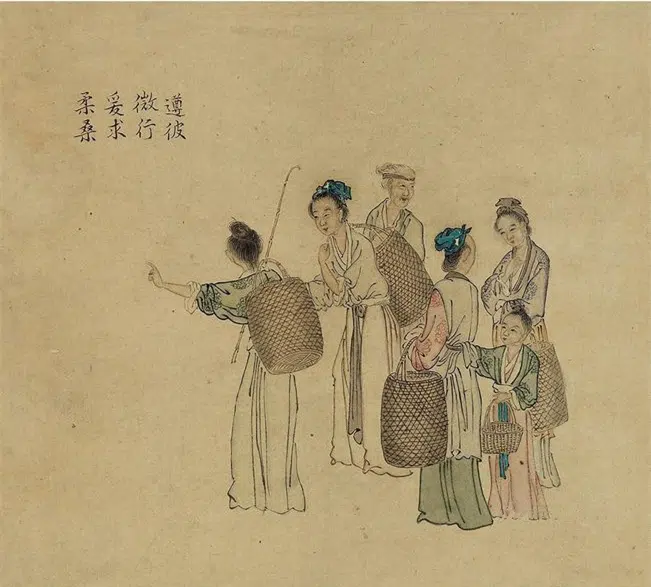 遵彼
微行
爰求
柔桑